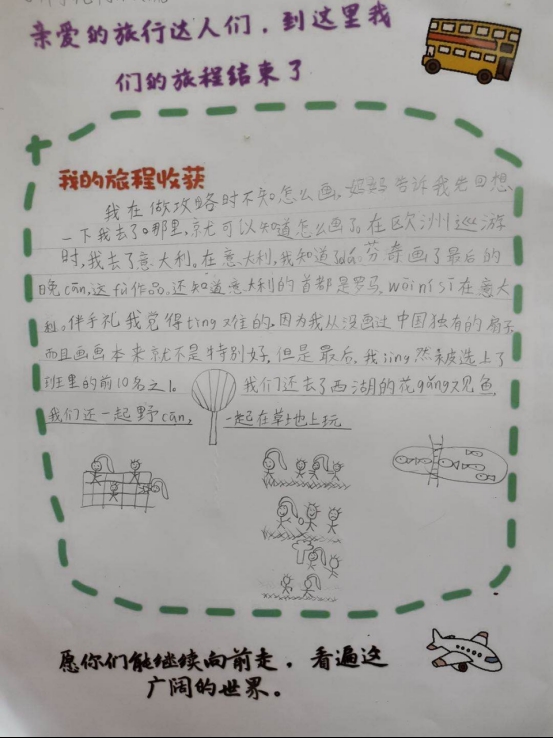 亲爱的旅行达人们，到这里我
们的旅程结束了
我的旅程收获
我在做攻略时不知怎么画，妈妈告诉我先回想
一下我去了哪里，就可以知道怎么画了。在欧洲巡游
时，我去了意大利。在意大利，我知道了达芬奇画了最后的
晚cān，这fú作品。还知道意大利的首都是罗马，wēinísī在意大
利。伴手礼我觉得tǐng难的，因为我从没画过中国独有的扇子
而且画画本来就不是特别好，但是最后，我jìng然被选上了
班里的前10名之1。我们还去了西湖的花gǎng观鱼
我们还一起野cān，一起在草地上玩
愿你们能继续向前走，看遍这
广阔的世界。